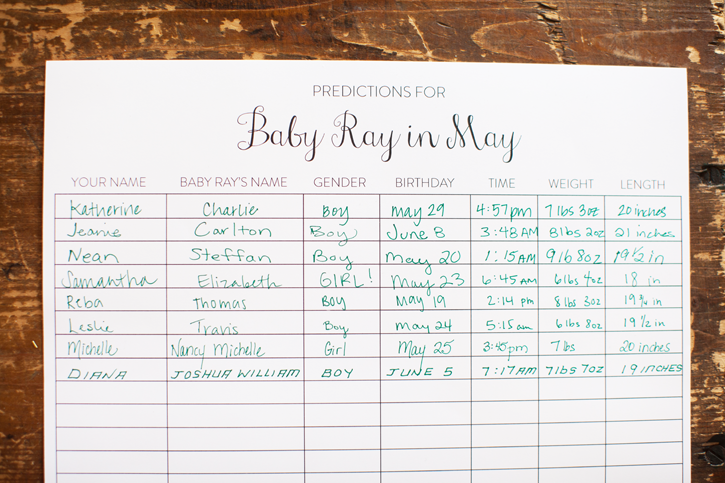 PREDICTIONS FOR
Baby Ray in May
YOUR NAME BABY RAY'S NAME GENDER BIRTHDAY TIME WEIGHT LENGTH
Katherine Charlie Boy May 29 4:57pm 7 lbs 3oz 20 inches
Jeanie Carlton Boy June 8 3:48 AM 8 lbs 2oz 21 inches
Nean Steffan Boy May 20 1:15 AM 9 lb 8oz 19 1/2 in
Samantha Elizabeth GIRL! May 23 6:45 AM 6 lbs 4oz 18 in
Reba Thomas Boy May 19 2:14 pm 8 lbs 3oz 19 3/4 in
Leslie Travis Boy May 24 5:15 am 6 lbs 8oz 19 1/2 in
Michelle Nancy Michelle Girl May 25 3:45pm 7 lbs 20 inches
DIANA JOSHUA WILLIAM BOY JUNE 5 7:17 AM 7 lbs 7oz 19 INCHES